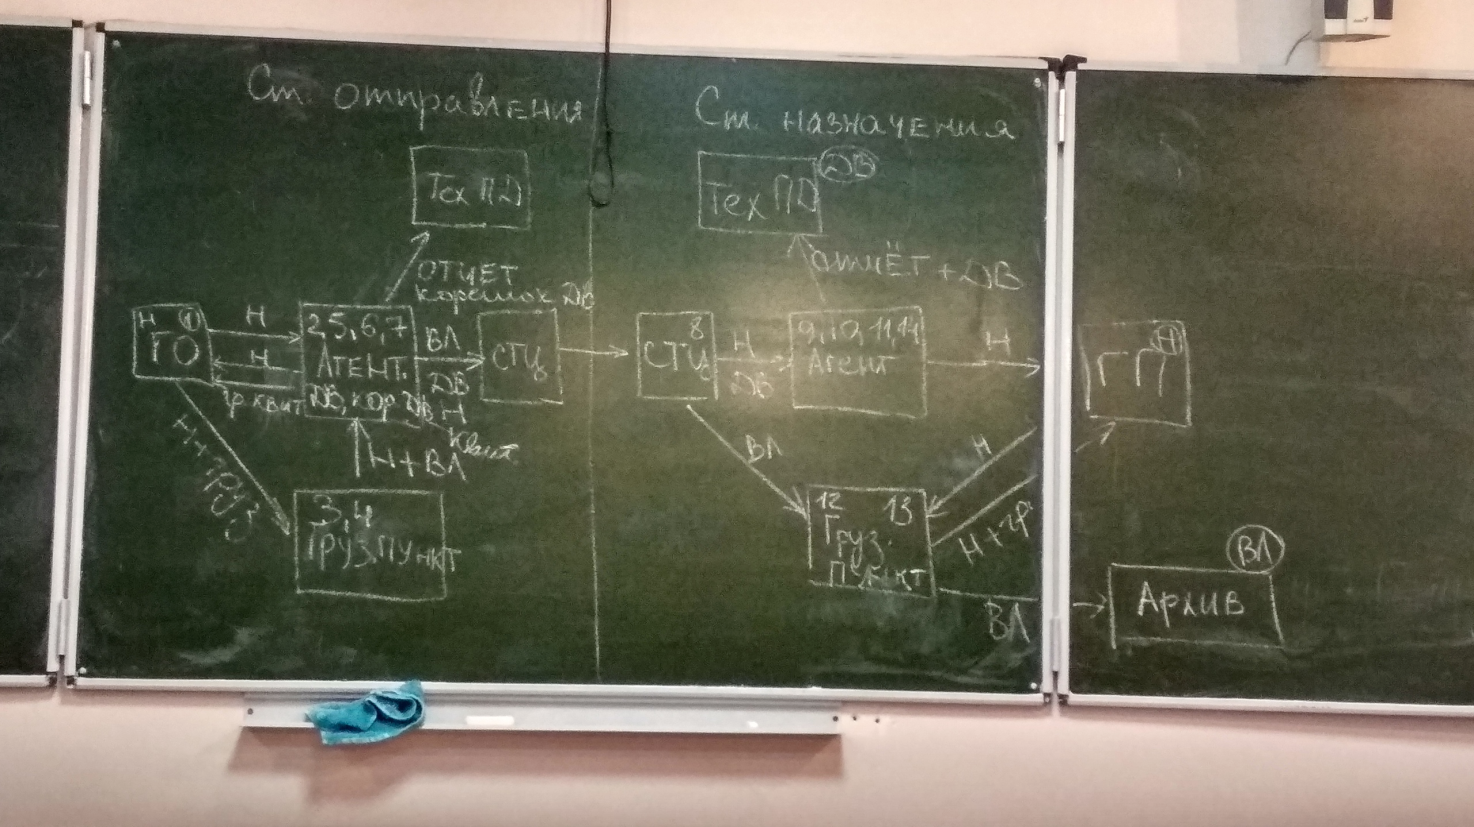 Ст. отправления
Ст. назначения
ТехПД
ТехПД
ДВ
ОТЧЕТ
корешок ДВ
отчЁт + ДВ
Н 1
ГО
Н
Н
гр.квит
2,5,6,7
Агент.
ДВ, кор ДВ
ВЛ
ДВ
Н
Квит
СТЦ
8
СТЦ
Н
ДВ
9,10,11,14
Агент
Н
Н
ГП
Н+груз
Н+ВЛ
3,4
Груз.пункт
ВЛ
12 13
Груз.
Пункт
Н
Н+гр
ВЛ
ВЛ
Архив